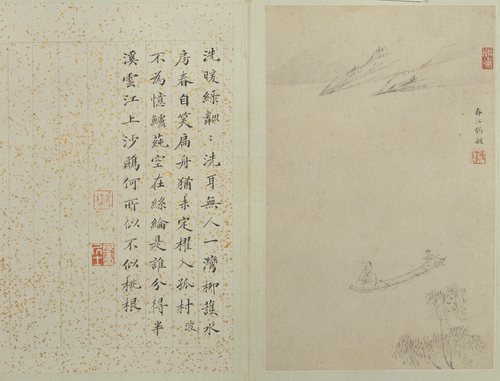 洗暖綠粼〻洗耳無人一灣柳護水
房春自笑扁舟猶未定櫂入孤村 波
不為憶鱸蓴空在絲綸是誰分得半
溪雲江上沙鷗何所似不似桃根
春江釣艇